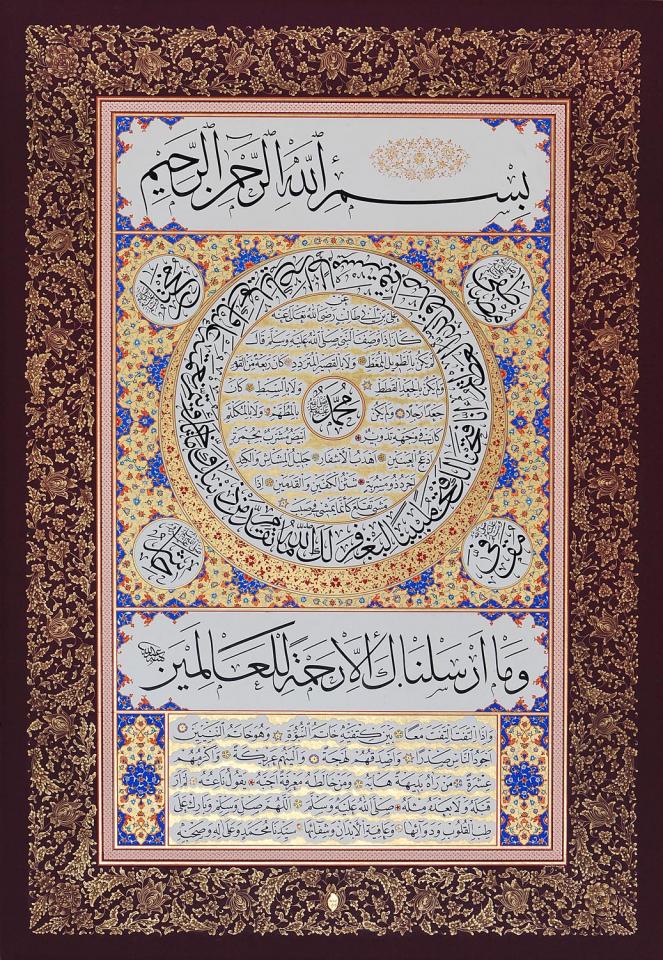 بسم الله الرحمن الرحيم
عن
علي بن ابي طالب رضي الله تعالى عنه
كان اذا وصف النبي صلى الله عليه وسلم قال
لم يكن بالطويل الممغط ولا بالقصير المتردد وكان ربعة من القوم
ولم يكن بالجعد القطط ولا بالسبط كان
محمد
جعدا رجلا ولم يكن بالمطهم ولا بالمكلثم
وكان في وجهه تدوير ابيض مشرب بحمرة
ادعج العينين اهدب الاشفار جليل المشاش والكتد
اجرد ذو مسربة شثن الكفين والقدمين اذا
مشى تقلع كانما يمشي في صبب
انا فتحنا لك فتحا مبينا ليغفر لك الله ما تقدم من ذنبك وما تأخر ويتم نعمته عليك ويهديك صراطا مستقيما وينصرك الله نصرا عزيزا
وما ارسلناك الا رحمة للعالمين
واذا التفت التفت معا بين كتفيه خاتم النبوة وهو خاتم النبيين
اجود الناس صدرا واصدقهم لهجة والينهم عريكة واكرمهم
عشرة من رآه بديهة هابه ومن خالطه معرفة احبه يقول ناعته لم ار
قبله ولا بعده مثله صلى الله عليه وسلم اللهم صل وسلم وبارك على
طب القلوب ودوائها وعافية الابدان وشفائها سيدنا محمد وعلى آله وصحبه